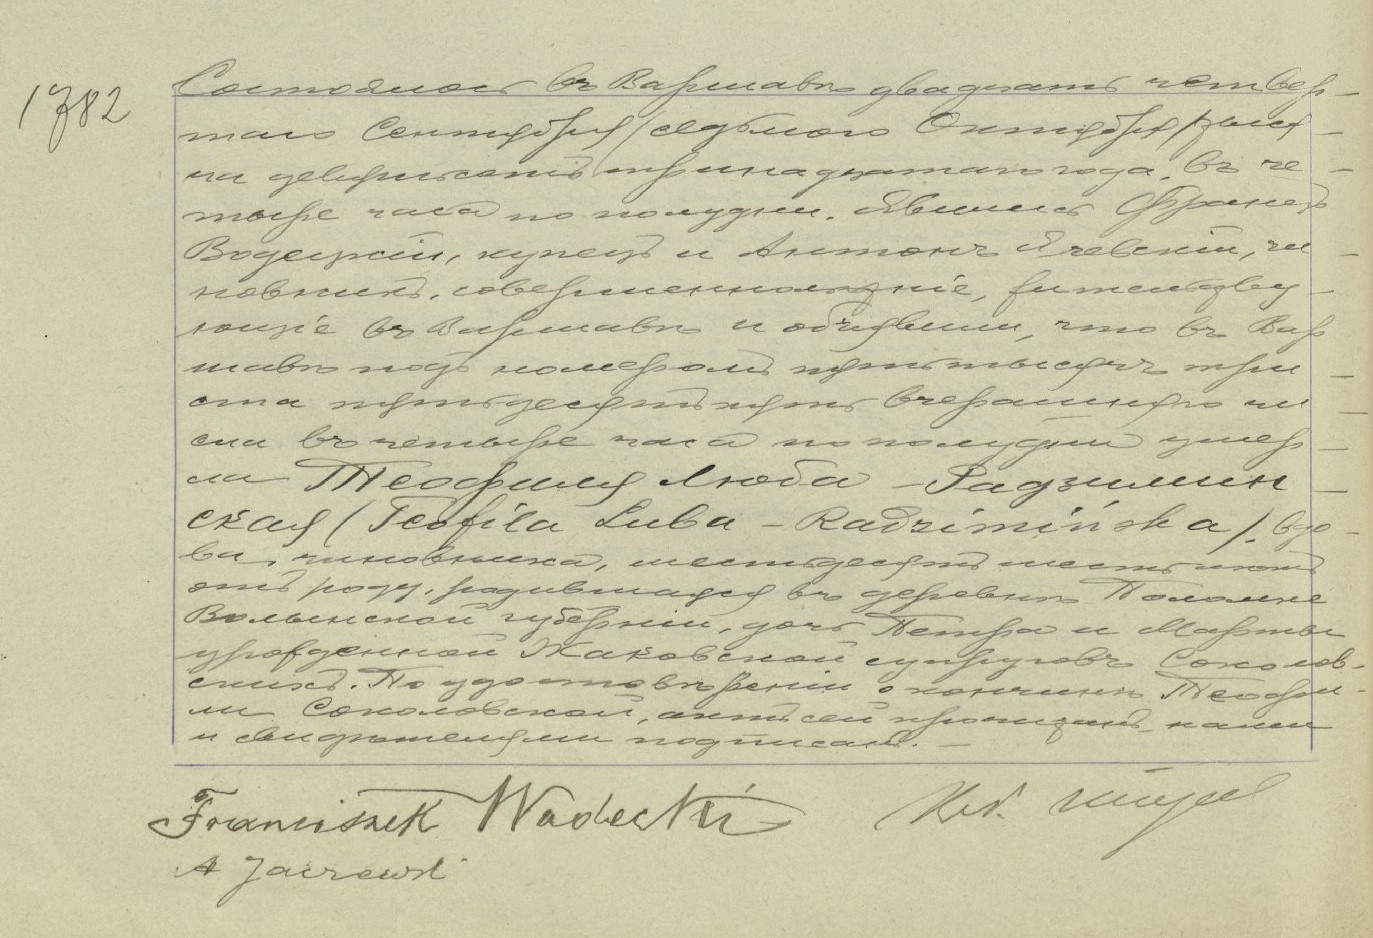 1782
Состоялось въ Варшавѣ двадцать четвер-
таго Сентября /седьмаго Октября/ тыся-
ча девятьсотъ тринадцатаго года, въ че-
тыре часа по полудни. Явились Францъ
Водецкій, купецъ и Антонъ Ячевскій, чи
новникъ, совершеннолѣтніе, жительству-
ющіе въ Варшавѣ и объявили, что въ Вар
шавѣ подъ номеромъ пять тысячъ три-
ста пятьдесятъ пять вчерашняго чи-
сла въ четыре часа по полудни умер-
ла Теофиля Люба - Радзимин-
ская (Teofila Luba - Radzimińska), вдо-
ва чиновника, шестьдесятъ шесть лѣтъ
отъ роду, родившаяся въ деревнѣ
Волынской губерніи, дочь Петра и Марты
урожденной Жаковской супруговъ Соколов-
скихъ. По удостовѣреніи о кончинѣ Теофи-
ли Соколовской, актъ сей прочитанъ, нами
и свидѣтелями подписанъ. —
Franciszek Wodecki
A Jaczewski